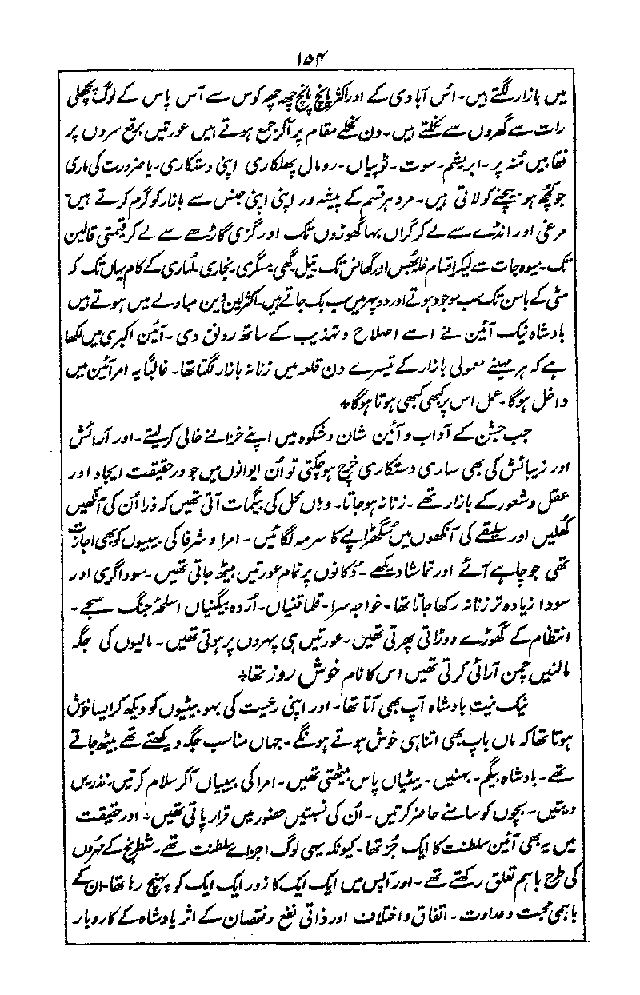 ۱۵۴
میں بازار لگتے ہیں۔ اُس آبادی کے اور اکثر پانچ پانچ چھ چھ کوس سے آس پاس کے لوگ پچھلی
رات سے گھروں سے نکلتے ہیں۔ دن نکلے مقام پر آکر جمع ہوتے ہیں عورتیں برقع سروں پر
نقابیں مُنہ پر۔ ابریشم۔ سوت۔ ٹوپیاں۔ رومال پھلکاری اپنی دستکاری۔ یا ضرورت کی ماری
جو کچھ ہو بیچنے کو لاتی ہیں۔ مرد ہر قسم کے پیشہ ور اپنی اپنی جنس سے بازار کو گرم کرتے ہیں
مرغی اور انڈے سے لے کر گراں بہا گھوڑوں تک اور گزی گاڑھے سے لے کر قیمتی قالین
تک۔ میوہ جات سے لیکر اقسام غلہ بھُس اور گھانس تک تیل گھی مِسگری نجاری معماری کے کام یہاں تک کہ
مٹی کے باسن تک سب موجود ہوتے اور دوپہر میں سب بک جاتے ہیں۔ اکثر لین دین مبادلے میں ہوتے ہیں
بادشاہ نیک آئین نے اسے اصلاح و تہذیب کے ساتھ رونق دی۔ آئین اکبری میں لکھا
ہے کہ ہر مہینے معمولی بازار کے تیسرے دن قلعہ میں زنانہ بازار لگتا تھا۔ غالباً یہ امر آئین میں
داخل ہوگا۔ عمل اس پر کبھی کبھی ہوتا ہوگا +
جب جشن کے آداب و آئین شان و شکوہ میں اپنے خزانے خالی کر لیتے۔ اور آرائش
اور زیبائش کی بھی ساری دستکاری خرچ ہو چکتی تو اُن ایوانوں میں جو درحقیقت ایجاد اور
عقل و شعور کے بازار تھے۔ زنانہ ہو جاتا۔ وہاں محل کی بیگمات آتی تھیں کہ ذرا اُن کی آنکھیں
کھلیں اور سلیقے کی آنکھوں میں سُگھڑاپے کا سرمہ لگائیں۔ امرا و شرفا کی بیبیوں کو بھی اجازت
تھی جو چاہے آئے اور تماشا دیکھے۔ دُکانوں پر تمام عورتیں بیٹھ جاتی تھیں۔ سوداگری اور
سودا زیادہ تر زنانہ رکھا جاتا تھا۔ خواجہ سرا۔ قلماقنیاں۔ اُردہ بیگنیاں اسلحۂ جنگ سجے۔
انتظام کے گھوڑے دوڑاتی پھرتی تھیں۔ عورتیں ہی پہروں پر ہوتی تھیں۔ مالیوں کی جگہ
مالنیں چمن آرائی کرتی تھیں اس کا نام خوش روز تھا +
نیک نیت بادشاہ آپ بھی آتا تھا۔ اور اپنی رعیت کی بہو بیٹیوں کو دیکھ کر ایسا خوش
ہوتا تھا کہ ماں باپ بھی اتنا ہی خوش ہوتے ہونگے۔ جہاں مناسب جگہ دیکھتے تھے بیٹھ جاتے
تھے۔ بادشاہ بیگم۔ بہنیں۔ بیٹیاں پاس بیٹھتی تھیں۔ امرا کی بیبیاں آکر سلام کرتیں نذریں
دیتیں۔ بچوں کو سامنے حاضر کرتیں۔ اُن کی نسبتیں حضور میں قرار پاتی تھیں۔ اور حقیقت
میں یہ بھی آئین سلطنت کا ایک جُز تھا۔ کیونکہ یہی لوگ اجزائے سلطنت تھے۔ شطرنج کے مُہروں
کی طرح باہم تعلق رکھتے تھے۔ اور آپس میں ایک ایک کا زور ایک ایک کو پہنچ رہا تھا۔ ان کے
باہمی محبت و عداوت۔ اتفاق و اختلاف اور ذاتی نفع و نقصان کے اثر بادشاہ کے کاروبار